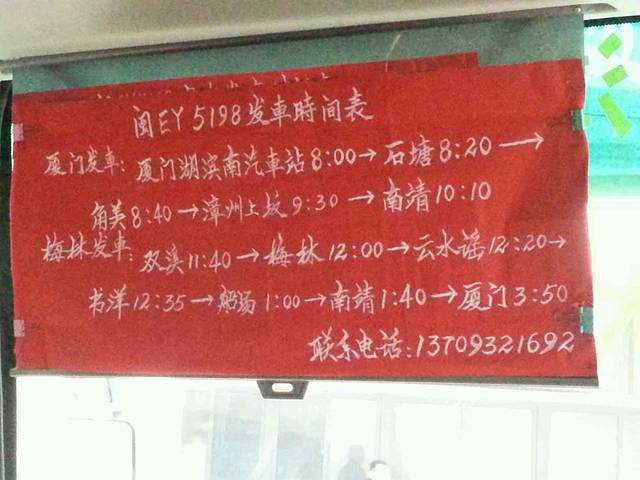 闽EY5198发車時间表
厦门发车：厦门湖滨南汽車站8:00→石塘8:20→
角美8:40→漳州上坂9:30→南靖10:10
梅林发車：双溪11:40→梅林12:00→云水谣12:20→
书洋12:35→船场1:00→南靖1:40→厦门3:50
联系电话:13709321692